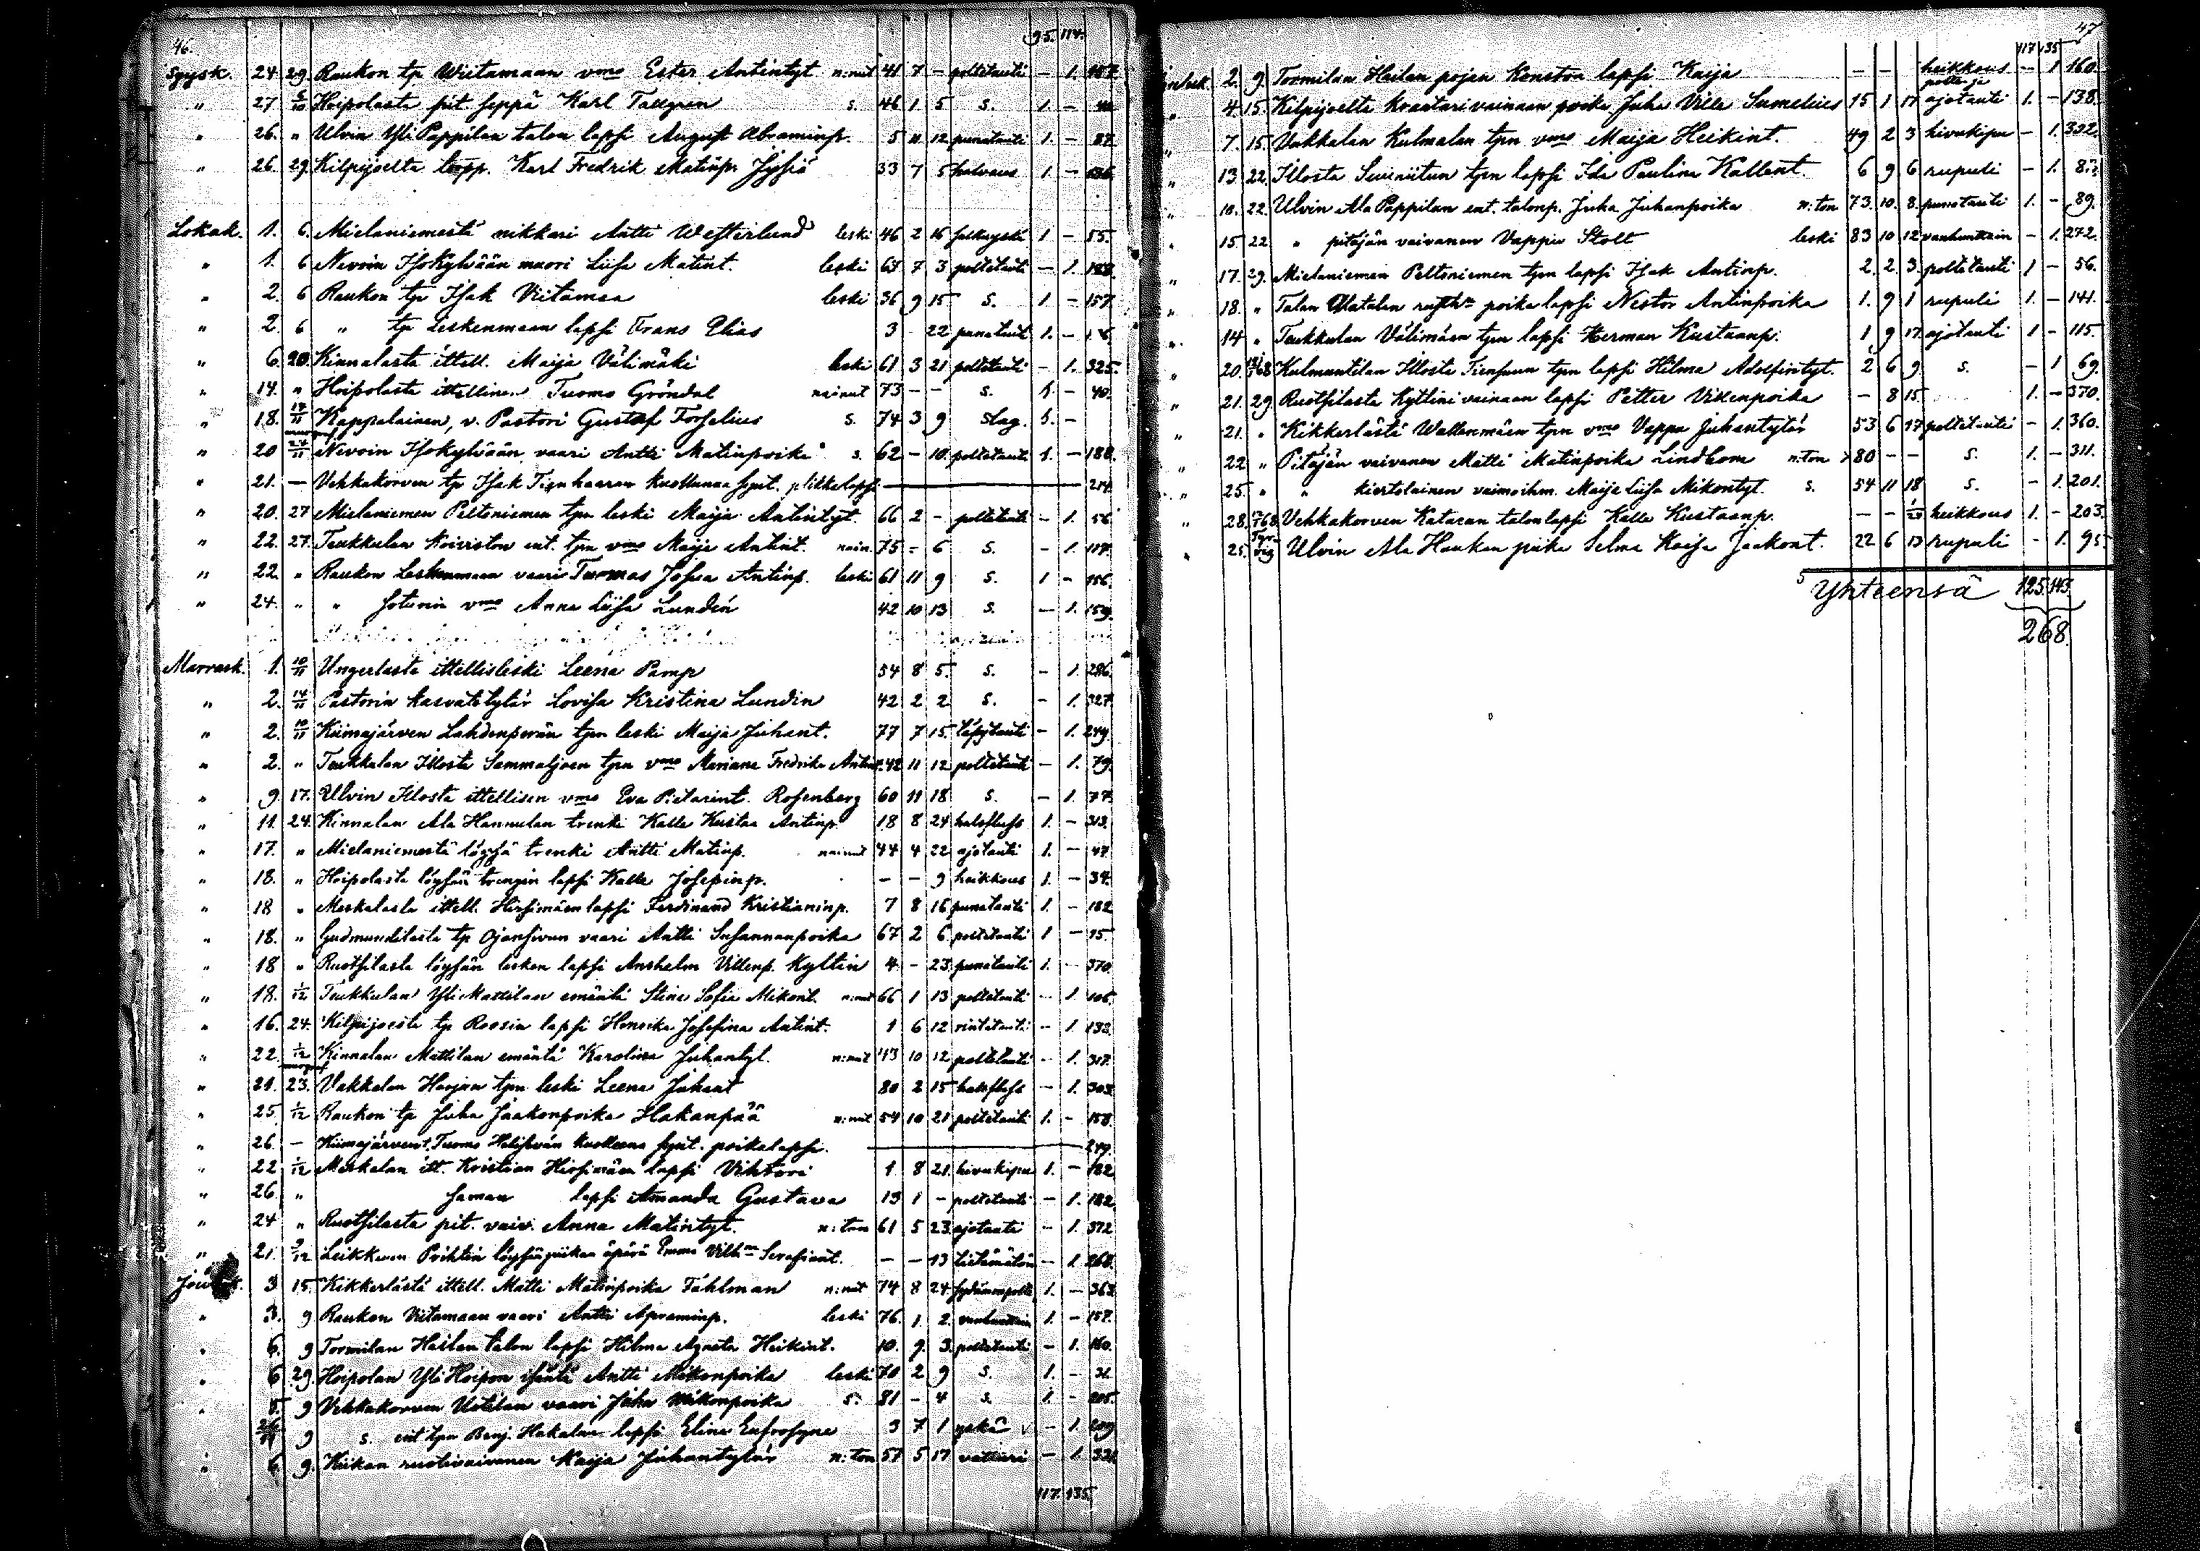 46.
95. 114.
Syysk. 24 29. Raukon tp Wiitamaan vmo Ester Antintyt n:nut 41 7 - polttotauti - 1. 157
" 27 Hoipolasta pit. seppä Karl Tallgren s. 46 1 5 s. 1. -
" 26. " Ulvin Yli Pappilan talon lapsi August Abraminp. 5 11 12 punatauti 1. - 87.
" 26 29. Kilpijoelta torpp. Karl Fredrik Matinp. 33 7 5 halvaus 1. -
Lokak. 1. 6. Mielaniemestä nikkari Antti Westerlund leski 46 2 16 1 - 55.
" 1. 6 Nevoin Isokylvään muori Liisa Matint. leski 63 7 3 polttotauti - 1. 188.
" 2. 6 Raukon tp Isak Viitamaa leski 36 9 15 s. 1. - 157.
" 2. 6 " tp Leskenmaan lapsi Frans Elias 3 - 22 punatauti 1. -
" 6. 20. Kinnalasta ittell. Maija Välimäki leski 61 3 21 polttotauti - 1. 325.
" 14. " Hoipolasta ittellinen Tuomo Gröndal nainut 73 - - s. 1. - 40.
" 18. 17/11 Kappalainen, v. Pastori Gustaf Forselius s. 74 3 9 slag. 1. -
" 20 24/11 Nevoin Isokylvään vaari Antti Matinpoika s. 62 - 10 polttotauti 1. - 188.
" 21. — Vehkakorven tp Isak Tienhaaran kuolleena synt. tilkkalapsi 214.
" 20. 27 Mielaniemen Peltoniemen tpn leski Maija Antintyt. 66 2 - polttotauti - 1. 56
" 22. 27. Teukkulan Koiviston ent. tpn vmo Maija Antint. nain. 75 - 6 s. - 1. 117.
" 22. " Raukon Leskenmaan vaari Tuomas Josua Antinp. leski 61 11 9 s. 1 - 156.
" 24. " " Soturin vmo Anna Liisa Lundén 42 10 13 s. - 1. 159.
Marrask. 1. 10/11 Ungerlasta ittellisleski Leena Pamp 54 8 5. s. - 1. 286.
" 2. 14/11 Pastorin kasvatitytär Lovisa Kristina Lundin 42 2 2 s. - 1. 327.
" 2. 10/11 Kiimajärven Lahdenperän tpn leski Maija Juhant. 77 7 15. - 1. 249.
" 2. " Teukkulan Illosta Sammaljoen tpn vmo Mariana Fredrika Antint. 42 11 12 polttotauti - 1. 79.
" 9. 17. Ulvin Illosta ittellisen vmo Eva Pietarint. Rosenberg 60 11 18 s. - 1. 77.
" 11. 24. Kinnalan Ala Hannulan trenki Kalle Kustaa Antinp. 18 8 24 halsfluss 1. - 313.
" 17. " Mielaniemestä löysä trenki Antti Matinp. nainut 44 4 22 ajotauti 1. - 47.
" 18. " Hoipolasta löysän trengin lapsi Kalle Josepinp. - - 9 heikkous 1. - 34.
" 18 " Meskalasta ittell. Hirsimäen lapsi Ferdinand Kristianinp. 7 8 16 punatauti 1. - 182
" 18. " Gudmundilasta tp Ojansivun vaari Antti Susannanpoika 67 2 6 polttotauti 1 - 15.
" 18 " Ruotsilasta löysän lesken lapsi Anshelm Villenp. Kyltin 4 - 23 punatauti 1. - 370.
" 18. 1/12 Teukkulan Yli Mattilan emäntä Stina Sofia Mikont. n:nut 66 1 13 polttotauti - 1. 106.
" 16. 24. Kilpijoesta tp Roosin lapsi Henrika Josefina Antint. 1 6 12 rintatauti - 1. 133.
" 22. 1/12 Kinnalan Mattilan emäntä Karolina Juhantyt. n:nut 43 10 12 polttotauti - 1. 317.
" 21. 23. Vakkalan Harjun tpn leski Leena Juhant 80 2 15 halsfluss - 1. 303.
" 25. 1/12 Raukon tp Juha Jaakonpoika Hakanpää n:nut 54 10 21 polttotauti 1. - 158.
" 26. — Kiimajärven t. Tuomo kuolleena synt. poikalapsi. 249.
" 22 1/12 Meskalan itt. Kristian Hirsimäen lapsi Viktori 1 8 21 hivukipu 1. - 182
" 26. " saman lapsi Amanda Gustava 13 1 - polttotauti - 1. 182.
" 24 " Ruotsilasta pit. vaiv. Anna Matintyt. n:ton 61 5 23. ajotauti - 1. 372
" 21. Leikkuun löysän piikan äpärä Emma Vilhna Serafiant. - - 13 tietämätön - 1. 268.
Jouluk. 3. 15. Kikkerlästä ittell. Matti Matinpoika Tahlman n:nut 74 8 24 1. - 363.
" 3. 9 Raukon Viitamaan vaari Antti Apraminp. leski 76. 1 2. vanhuutain 1. - 157.
" 6. 9 Tormilan Heilan talon lapsi Hilma Agneta Heikint. 10. 9. 3. polttotauti - 1. 160.
" 6 29. Hoipolan Yli Hoipon isäntä Antti Mikonpoika leski 70 2 9 s. 1. -
" 5. 9 Vehkakorven Uotilan vaari Juha Mikonpoika s. 81 - 4 s. 1. - 205.
9 s. ent tpn Benj. Hakalan lapsi Elina Eufrosyna 3 7 1 yskä - 1. 209
" 6. 9. Kiikan ruotivaivanen Maija Juhantytär n:ton 51 5 17 vattuuri - 1. 331.
117. 135.
47
117 135
Jouluk. 2. 9. Tormilan Heilan pojan Konstan lapsi Kaija - - heikkous - 1 160.
" 4. 15. Kilpijoelta kvartarivainaan poika Juha Ville Sumelius 15 1 17 ajotauti 1. - 138.
" 7. 15. Vakkalan Kulmalan tpn vmo Maija Heikint. 49 2 3 hivukipu - 1. 332.
" 13. 22. Illosta Suiniitun tpn lapsi Ida Paulina Kallent. 6 9 6 rupuli - 1. 83.
" 10. 22. Ulvin Ala Pappilan ent. talonp. Juha Juhanpoika n:ton 73. 10. 8. punatauti 1. - 89.
" 15. 22 " pitäjän vaivanen Vappu Stolt leski 83 10 12 vanhuutain - 1. 272.
" 17. 29. Mielaniemen Peltoniemen tpn lapsi Isak Antinp. 2. 2. 3. polttotauti 1 - 56.
" 18. " Talan poikalapsi Nestor Antinpoika 1. 9 1 rupuli 1. - 141.
" 14 " Teukkulan Välimäen tpn lapsi Herman Kustaanp. 1 9 17 ajotauti 1 - 115.
" 20. Kulmantilan Illosta tpn lapsi Hilma Adolfintyt. 2 6 9 s. - 1 69.
" 21. 29 Ruotsilasta Kyltinivainaan lapsi Petter Villenpoika - 8 15 1. - 370.
" 21. " Kikkerlästä Wallenmäen tpn vmo Vappu Juhantytär 53 6 17 polttotauti - 1. 360.
" 22. " Pitäjän vaivanen Matti Matinpoika Lindbom n:ton 80 - - s. 1. - 311.
" 25. " " kiertolainen vaimoihm. Maija Liisa Mikontyt. s. 54 11 18 s. - 1. 201.
" 28. Vehkakorven Kataran talon lapsi Kalle Kustaanp. - - heikkous 1. - 203.
" 25. Ulvin Ala Haukan piika Selma Kaisa Jaakont. 22 6 13 rupuli - 1. 95.
Yhteensä 125. 143.
268.